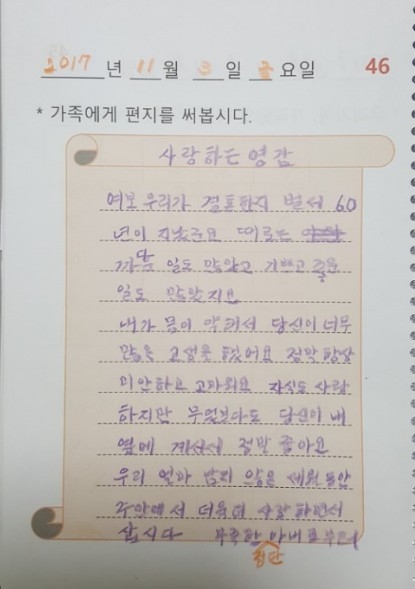 2017 년 11 월 3 일 금 요일 46
* 가족에게 편지를 써봅시다.
사랑하는 영감
여보 우리가 결혼한지 벌서 60
년이 지났군요 때로는
일도 많았고 기쁘고 좋은
일도 많았지요
내가 몸이 약해서 당신이 너무
많은 고생을 했어요 정말 항상
미안하고 고마워요 자식도 사랑
하지만 무엇보다도 당신이 내
옆에 계셔서 정말 좋아요
우리 얼마 남지 않은 세월 동안
주안에서 더욱더 사랑하면서
삽시다 부족한 아내로부터